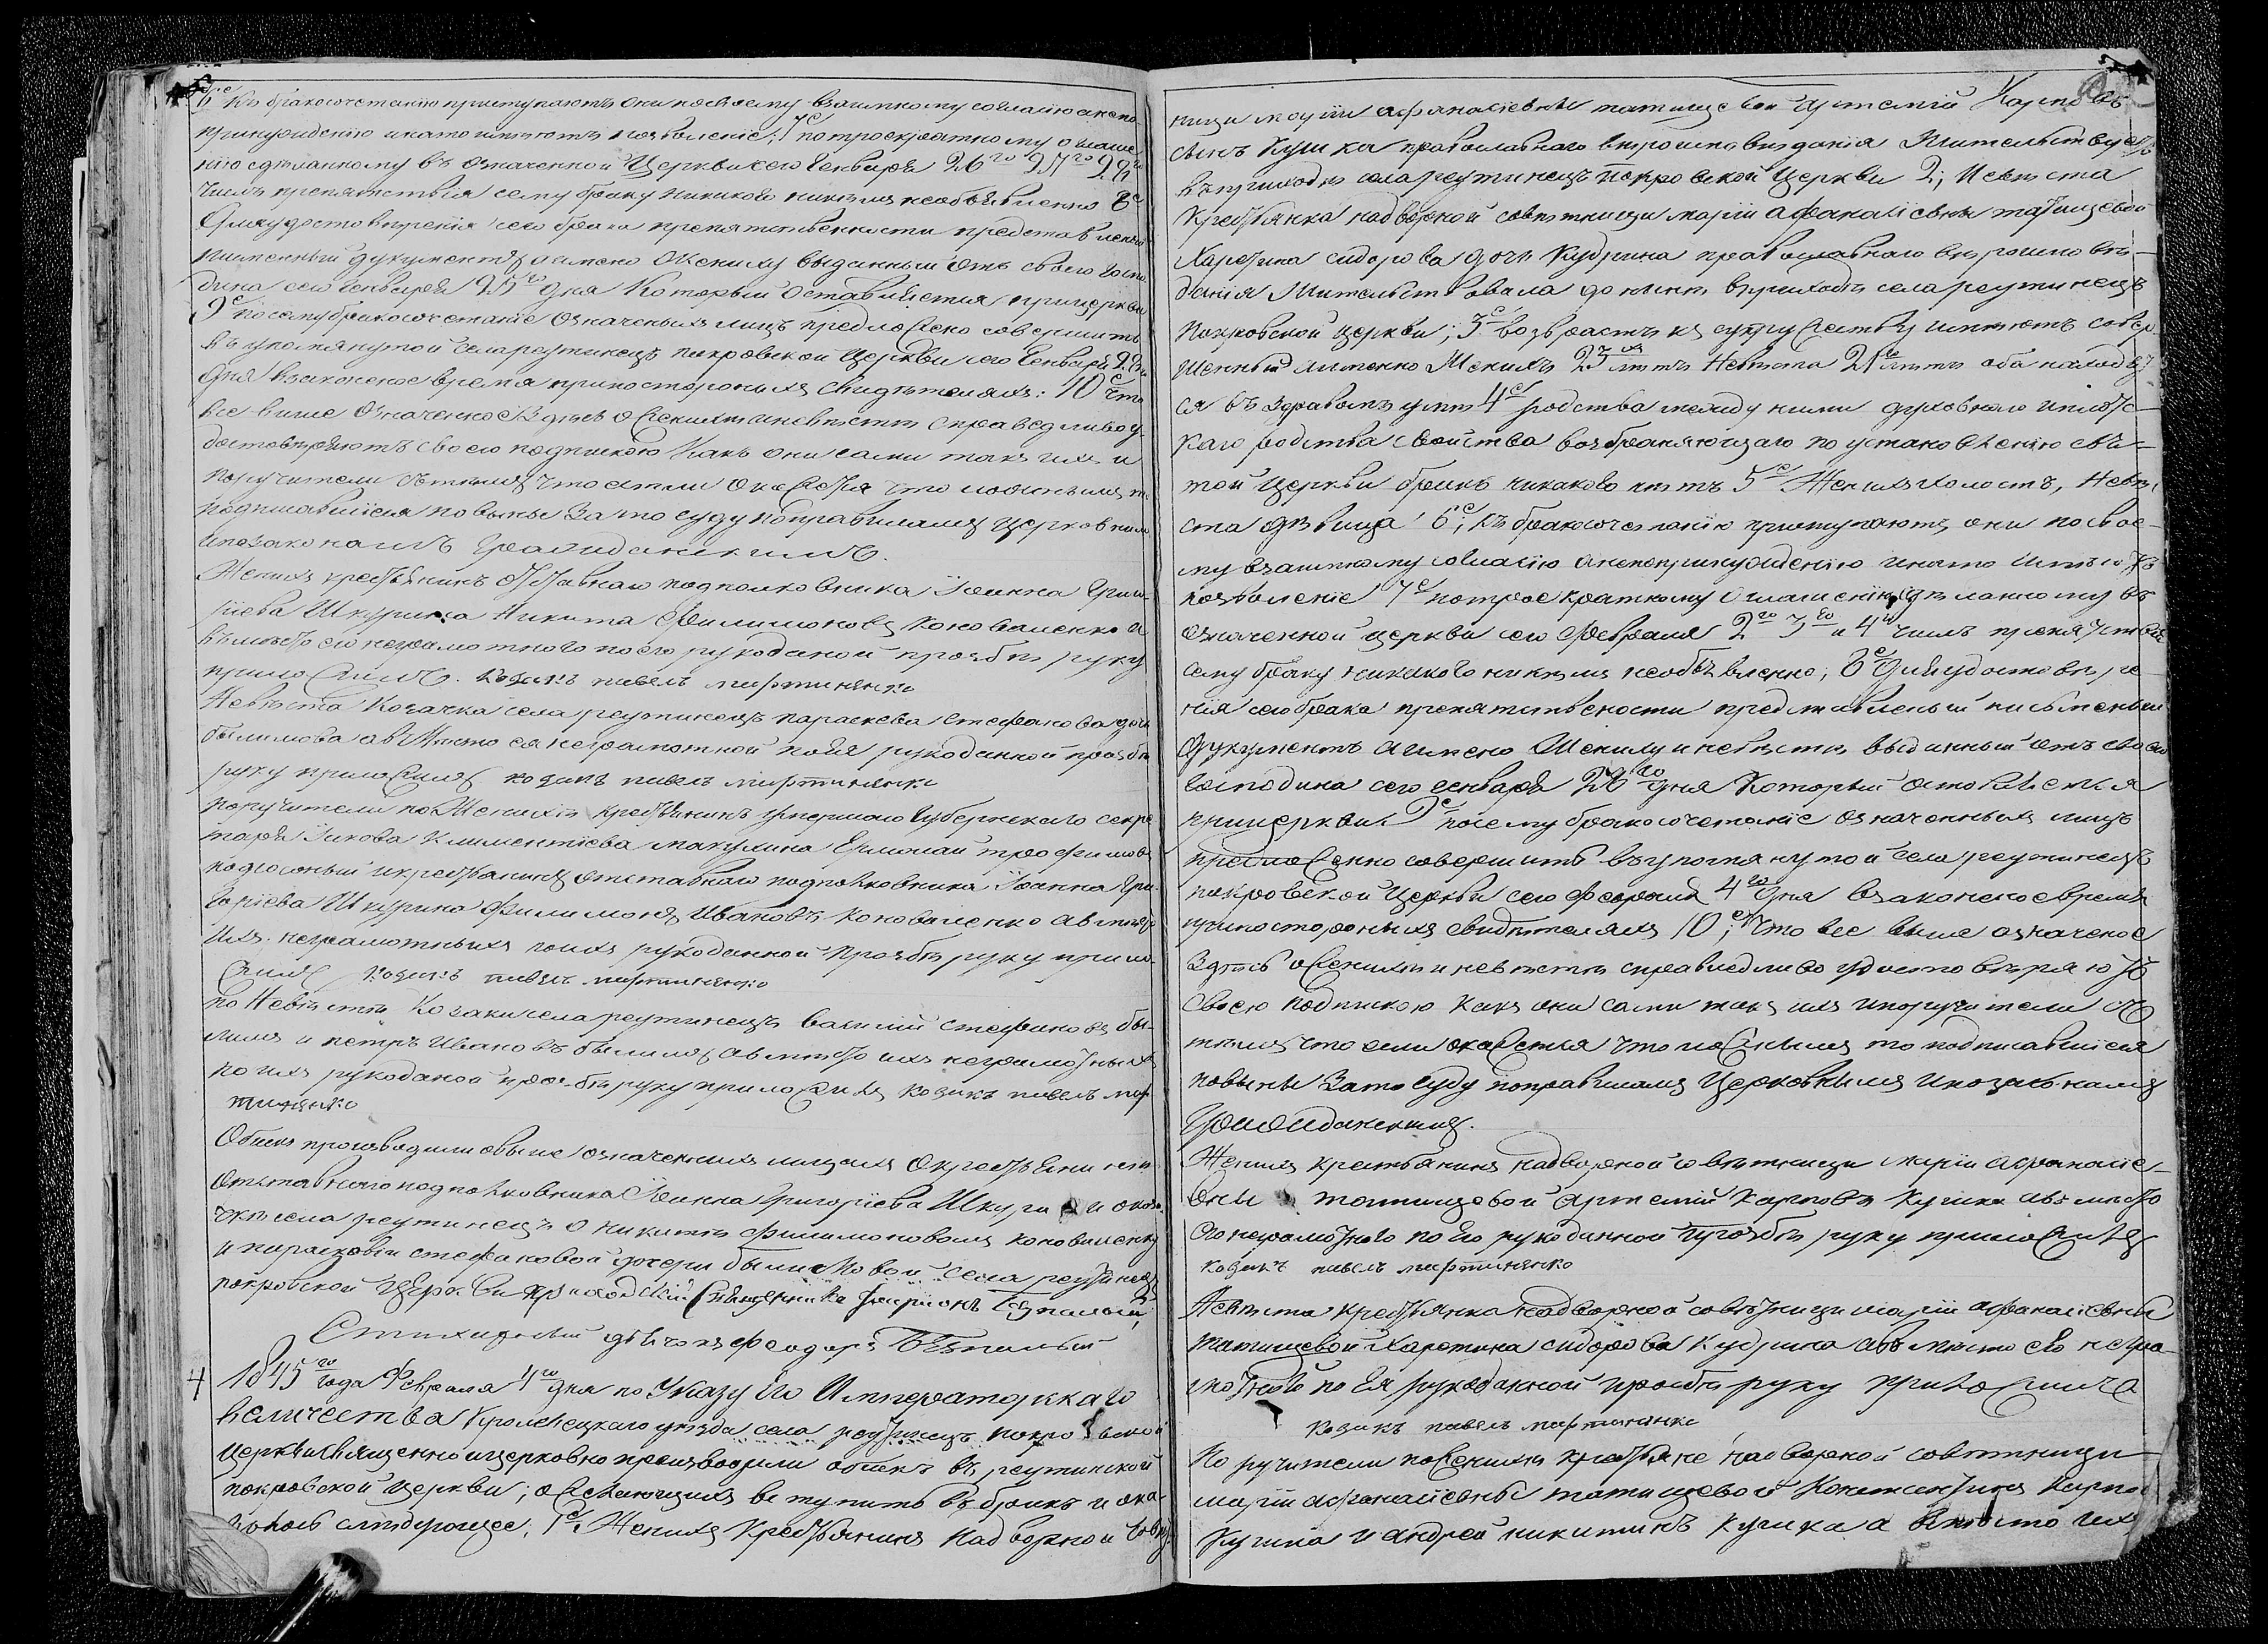 6е Къ бракосочетанію приступаютъ они по своему взаимному согласію а не по
принужденію и на то имѣютъ позволеніе; 7е по троекратному оглаше
нію сдѣланному въ означенной Церкви сего Генваря 26го 27го 28го
числъ препятствія сему браку никакого никемъ необъявленно 8е
Для удостовѣренія сего брака препятственности представленъ
писменный документъ а имено Жениху выданный отъ своего госпо
дина сего Генваря 25го дня Который оставляется при церкви
9е посему бракосочетаніе означеныхъ лицъ предложено совершить
въ упомянутой села реутинецъ покровской Церкви сего Генваря 28го
дня взаконеное время при постороныхъ свидѣтеляхъ: 10е что
все више означенное здѣсь о Женихѣ и невѣстѣ справедливо у
достовѣряютъ своею подпискою Какъ они сами такъ ихъ и
поручители съ тѣмъ что если окажется что ложнымъ то
подписавшіеся повины за то суду по правиламъ Церковнымъ
и по законамъ Гражданскимъ.
Женихъ крестьянинъ отставнаго подполковника Іоанна Григо
ріева Шкурина Никита Филимоновъ Коноваленко а
вмѣсто его неграмотного по его рукоданой прозбѣ руку
приложилъ. козакъ павелъ мартиненко
Невѣста Козачка села реутинецъ параскева Стефанова дочь
былимова а вмѣсто ея неграмотной по ея рукоданной прозбѣ
руку приложилъ козакъ павелъ мартиненко
поручители по Женихѣ крестьянинъ умершаго Губернскаго секре
таря Іякова Климентіева макухина Ермолай трофимовъ
и крестьянинъ отставнаго подполковника Іоанна Гри
горіева Шкурина Филимонъ Ивановъ Коноваленко а вмѣсто
ихъ неграмотныхъ по ихъ рукоданной прозбѣ руку прило
жилъ козакъ павелъ мартиненко
по Невѣстѣ Козаки села реутинецъ василій стефановъ бы
лимъ и петръ Ивановъ былимъ а вмѣсто ихъ неграмотныхъ
по ихъ рукоданой прозбѣ руку приложилъ козакъ павелъ мар
тиненко
Обыскъ производили о выше означенныхъ лицахъ о крестьянинѣ
отставнаго подполковника Іоанна Григоріева Шкурина и о коза
чкѣ села реутинецъ о никитѣ Филимоновомъ коноваленку
и параскевіи стефановой дочери былимовой села реутинецъ
покровской Церкви приходскій Священникъ
Стихарный дьячокъ Феодоръ
4 1845го года Февраля 4го дня по Указу Его Императорскаго
величества Кролевецкаго уѣзда села реутинецъ покровской
Церкви Священно и церковно производили обыскъ въ реутинской
покровской Церкви; о желающихъ вступить въ бракъ и ока
залось слѣдующее, 1е. Женихъ Крестьянинъ Надворной совѣт
ници маріи афанасіевны татищевой Артемій Карповъ
сынъ Кушка православнаго вѣроисповѣданія Жительствуетъ
въ приходѣ села реутинецъ покровской Церкви 2; Невѣста
Крестьянка надворной совѣтници маріи афанасіевны татищевой
Харетина сидорова дочь Кудрина православнаго вѣроисповѣ-
данія Жительствовала до нынѣ въ приходѣ села реутинецъ
покровской церкви; 3е возрастъ къ супружеству имѣютъ совер
шенный а именно Женихъ 23 лѣтъ Невѣста 21 лѣтъ оба находят
ся въ здравомъ умѣ 4е родства между ними духовнаго и плотс
каго родства свойства возбраняющаго по установленію свя-
той Церкви бракъ никакаго нѣтъ 5е Женихъ холостъ, Невѣ
ста дѣвица 6е; къ бракосочетанію приступаютъ они по свое-
му взаимному согласію а не по принужденію и на то имѣютъ
позволеніе 7е по троекратному оглашенію сдѣланному въ
означенной церкви сего февраля 2го 3го и 4го числъ препятствія
сему браку никакого никемъ необъявленно; 8е Для удостовѣре
нія сего брака препятствености представленый письменый
документъ а имено Жениху и невѣстѣ выданный отъ своего
господина сего генваря 26го дня Который оставляется
при церкви 9е посему бракосочетаніе означенныхъ лицъ
предложенно совершить въ упомянутой села реутинецъ
покровской Церкви сего февраля 4го дня взаконеное время
при постороныхъ свидѣтеляхъ 10е; что все више означеное
здѣсь о Женихѣ и невѣстѣ справедливо удостовѣряютъ
своею подпискою какъ они сами такъ ихъ и поручители съ
тѣмъ что если окажется что ложнымъ то подписавшіеся
повины за то суду по правиламъ Церковнымъ и по законамъ
Гражданскимъ.
Женихъ крестьянинъ надворной совѣтници маріи афанасіе-
вны татищевой Артемій Карповъ Кушка а вмѣсто
его неграмотного по Его рукоданной прозбѣ руку приложилъ
козакъ павелъ мартиненко
Невѣста крестьянка надворной совѣтници маріи афанасіевны
татищевой Харетина сидорова Кудрина а вмѣсто её негра-
мотной по Ея рукоданной прозбѣ руку приложилъ
козакъ павелъ мартиненко
По ручители по Женихѣ крестьяне надворной совѣтници
маріи афанасіевны татищевой Константинъ Карповъ
Кушка и андрей никитинъ кушка а вмѣсто ихъ